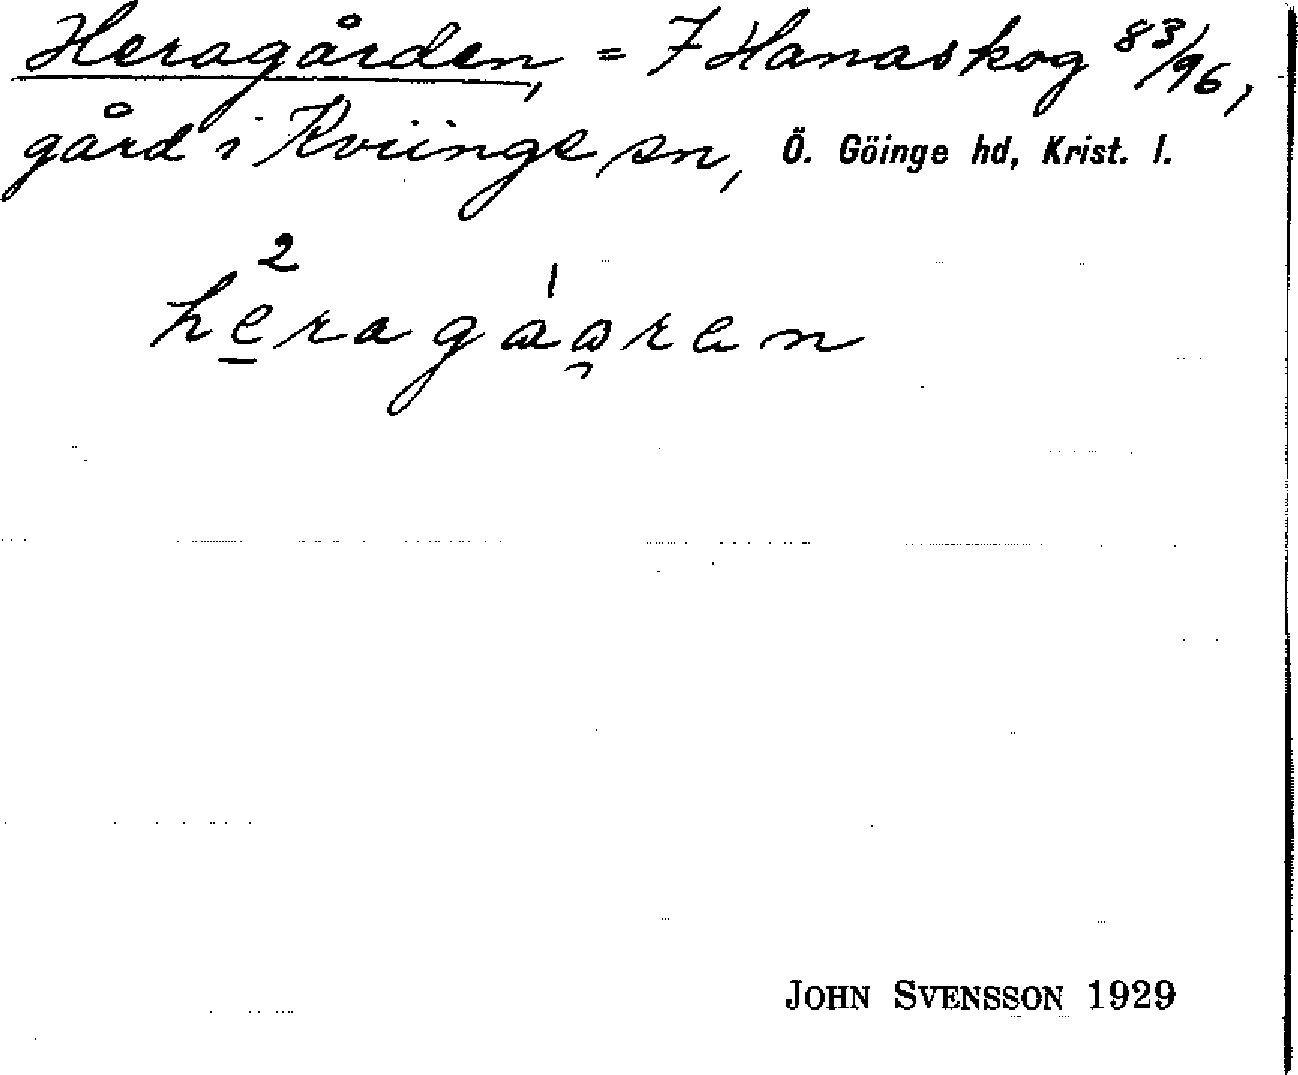 Heragården, = 7 Hanaskog 83/96,
gård i Kviinge sn, Ö. Göinge hd, Krist. l.
2 ı
heragaaren
JOHN SVENSSON 1929